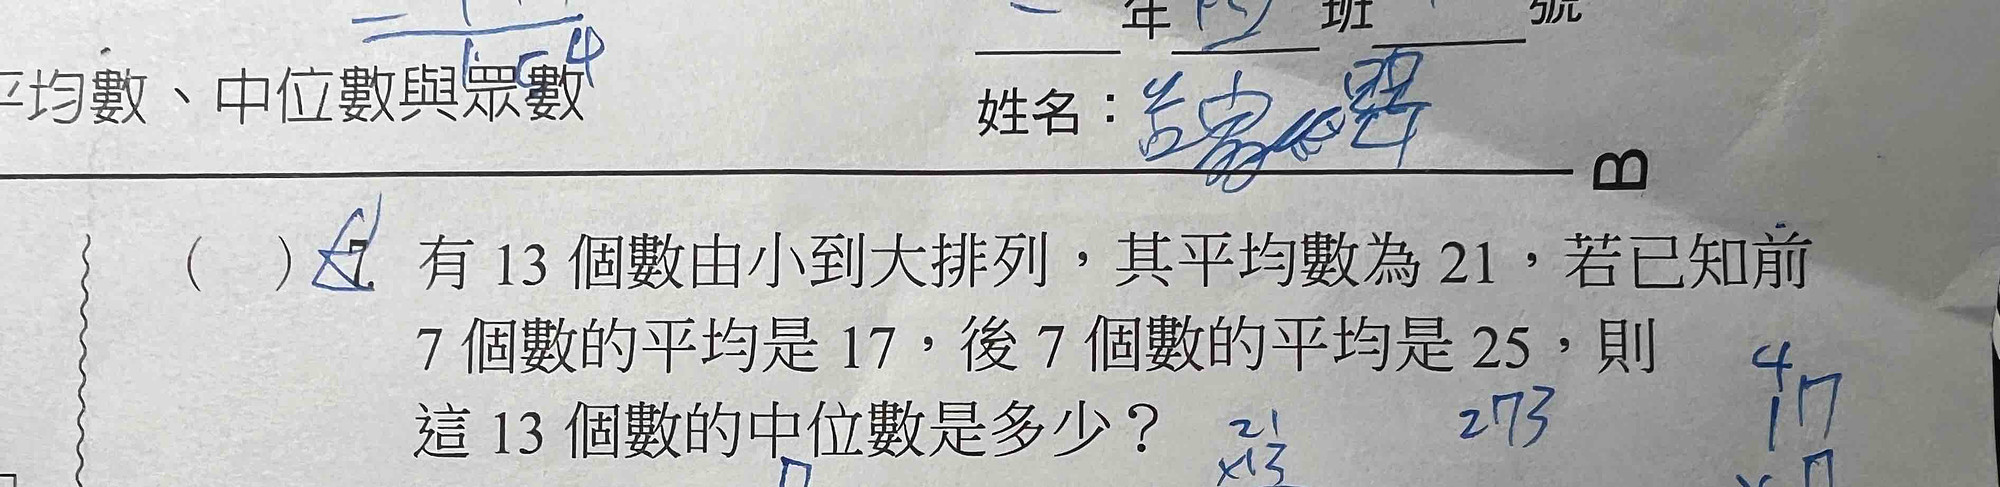 年 班 號
154
平均數、中位數與眾數
姓名：
B
( ) 7. 有 13 個數由小到大排列，其平均數為 21，若已知前
7 個數的平均是 17，後 7 個數的平均是 25，則
這 13 個數的中位數是多少？
4
21 273 17
×13